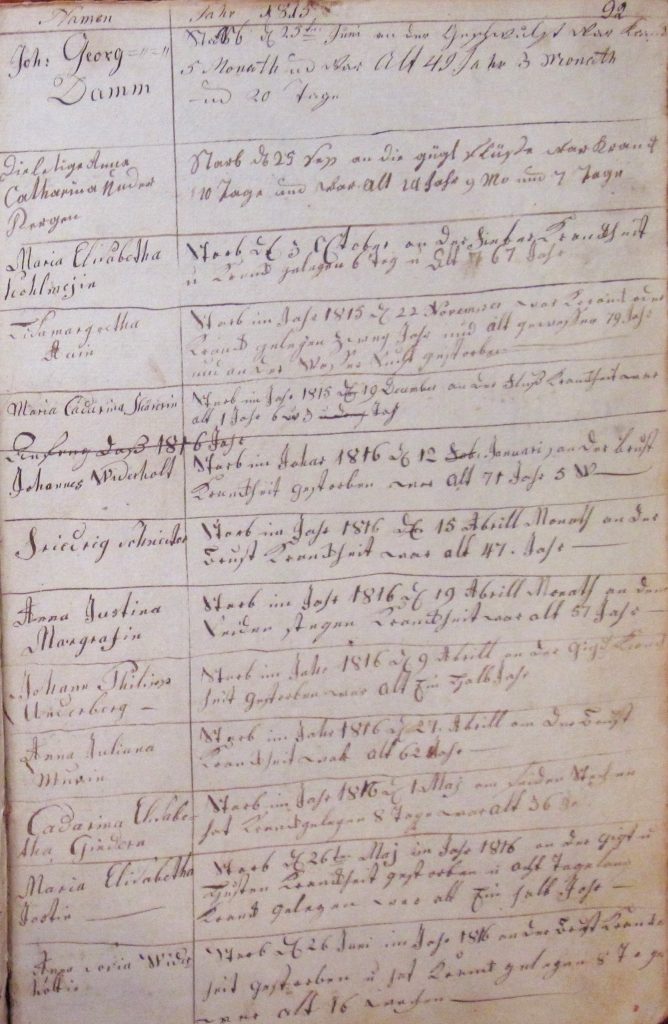 Namen Jahr 1815 92
Joh: Georg
Damm
Starb d 25ten Juni an der Geschwulst war Krank
5 Monath und war Alt 49 Jahr 3 Monath
und 20 Tage
Die ledige Anna
Catharina
Starb d 29 an die Flüsse war Krank
10 Tage und war alt Jahr 9 Mo und 7 Tage
Maria Elisabetha
Starb d 3 October an der Fieber Krankheit
u Krank gelegen 6 Tag u Alt 67 Jahr
Starb im Jahr 1815 d 22 November war Krank
Krank gelegen zwey Jahr und alt gewessen 79 Jahr
und an der Wasser Sucht gestorben
Maria Cadarina
Starb im Jahr 1815 d 19 December an der Krankheit war
alt 1 Jahr 6
Anfang daß 1816 Jahr
Johannes Widerholt
Starb im Jahr 1816 d 12 Januari, an der Brust
Krankheit gestorben war alt 71 Jahr 5 W
Friedrig Schneider
Starb im Jahr 1816 d 15 Abrill Monath an der
Brust Krankheit war alt 47. Jahr
Anna Justina
Starb im Jahr 1816 d 19 Abrill Monath an dem
Seiden stegen Krankheit war alt 57 Jahr
Johann Philipp
Starb im Jahr 1816 d 9 Abrill an der Gigt Krank
heit gestorben war alt Ein Halb Jahr
Anna Juliana
Starb im Jahr 1816 d 27. Abrill an der Brust
Krankheit war alt 62 Jahr
Cadarina Elisabe-
tha
Starb im Jahr 1816 d 1 Maj am Seiden Stechen
hat Krank gelegen 8 Tage war alt 36
Maria Elisabetha
Starb d 26ten Maj im Jahr 1816 an der Gigt u
Husten Krankheit gestorben u acht Tage lang
Krank gelegen war alt Ein halb Jahr
Anna Maria Wider
holtin
Starb d 26 Juni im Jahr 1816 an der Brust Krank-
heit gestorben u hat Krank gelegen 8 Tage
war alt 16 Wochen